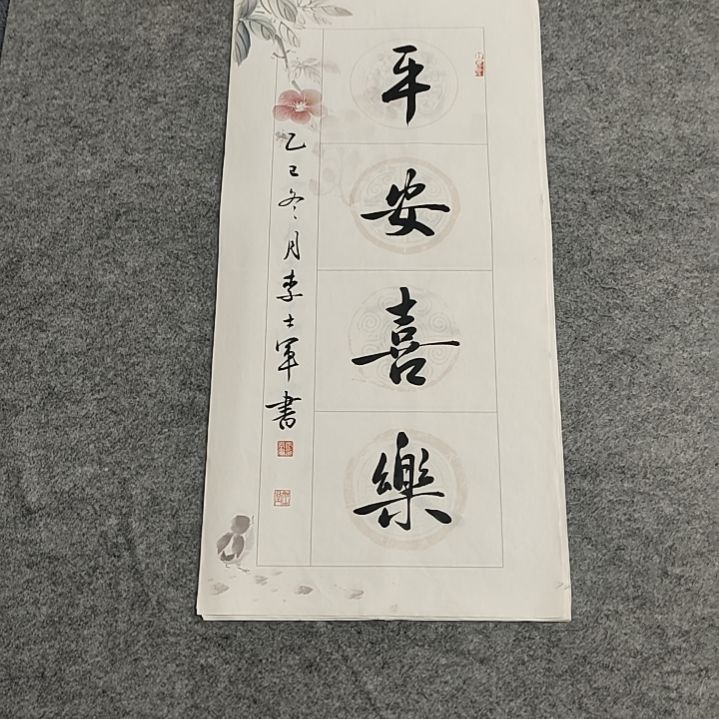 平安喜樂
乙巳冬月李士军書